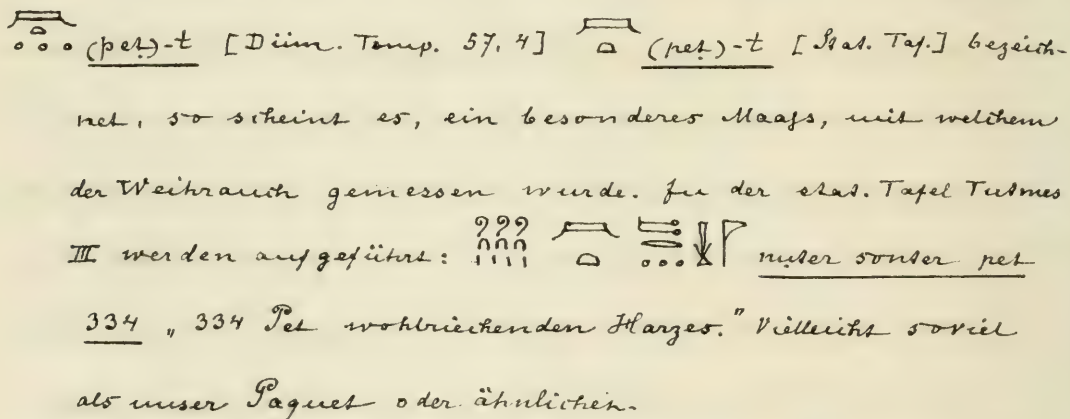 (peṭ)-t [Düm. Temp. 57, 4] (peṭ)-t [Stat. Taf.] bezeich-
net, so scheint es, ein besonderes Maaſs, mit welchem
der Weihrauch gemessen wurde. In der stat. Tafel Tutmes
III werden aufgeführt: nuter sonter pet
334 „334 Pet wohlriechenden Harzes." Vielleicht soviel
als unser Paquet oder ähnlichen.